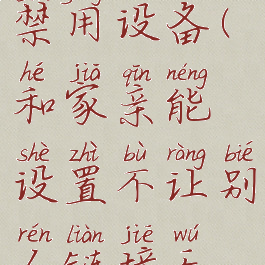 禁用设备(
hé jiā qīn néng
和家亲能
shè zhì bù ràng bié
设置不让别
rén liàn jiē wú
人链接无